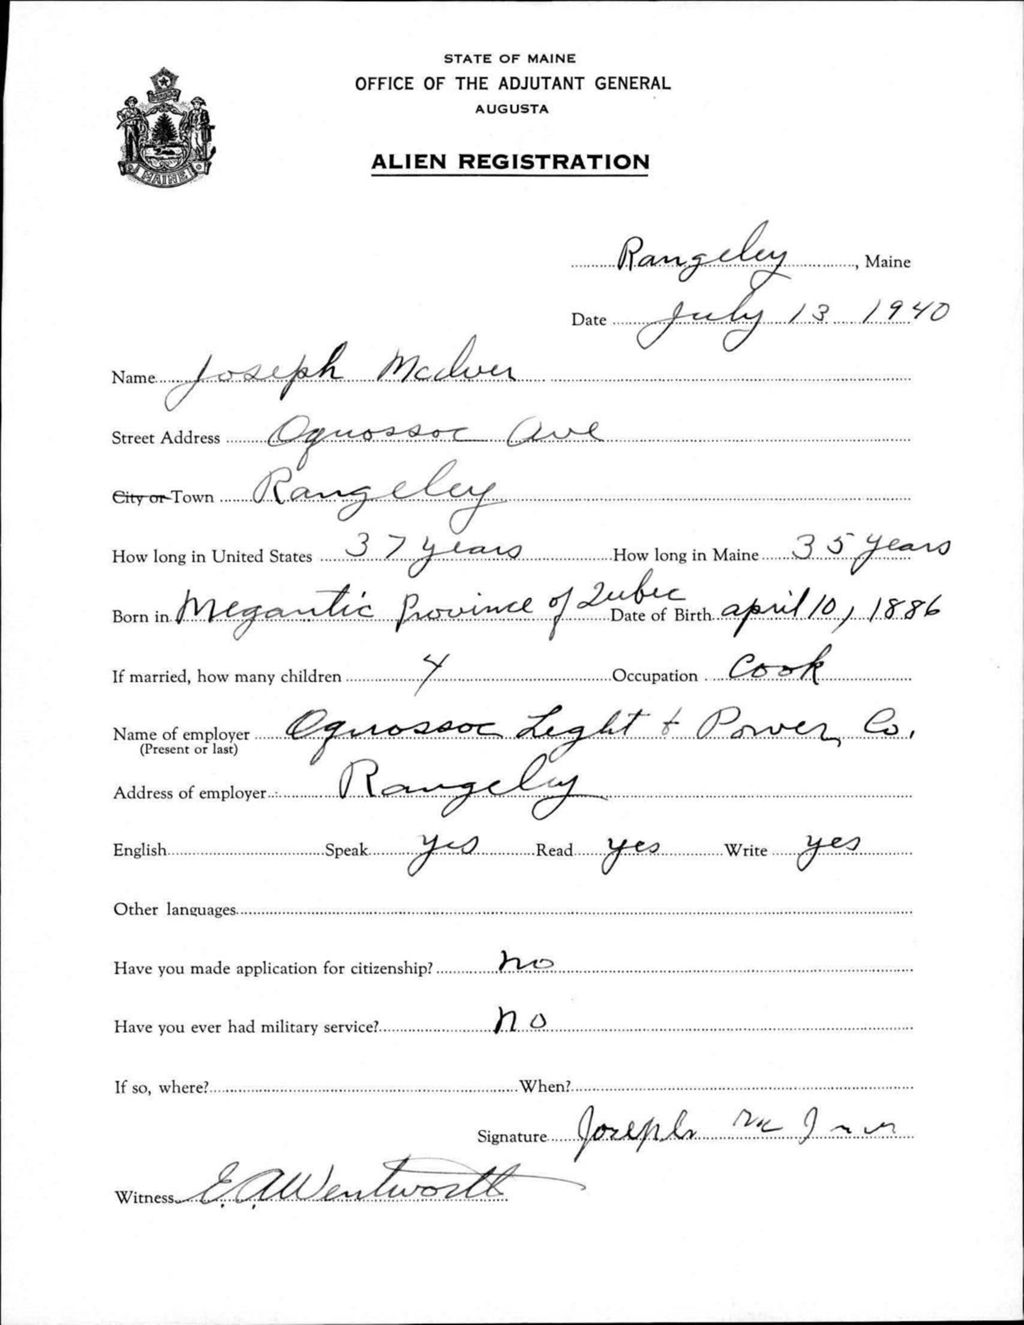 STATE OF MAINE
OFFICE OF THE ADJUTANT GENERAL
AUGUSTA
ALIEN REGISTRATION
MAINE
Rangeley, Maine
Date July 13 1940
Name Joseph McIver
Street Address Oquossoc Ave
City or Town Rangeley
How long in United States 37 years How long in Maine 35 years
Born in Megantic Province of Qubec Date of Birth april 10, 1886
If married, how many children 4 Occupation Cook
Name of employer Oquossoc Light + Power Co.
(Present or last)
Address of employer Rangeley
English Speak yes Read yes Write yes
Other languages
Have you made application for citizenship? no
Have you ever had military service? no
If so, where? When?
Signature Joseph Mc Iver
Witness E. A. Wentworth